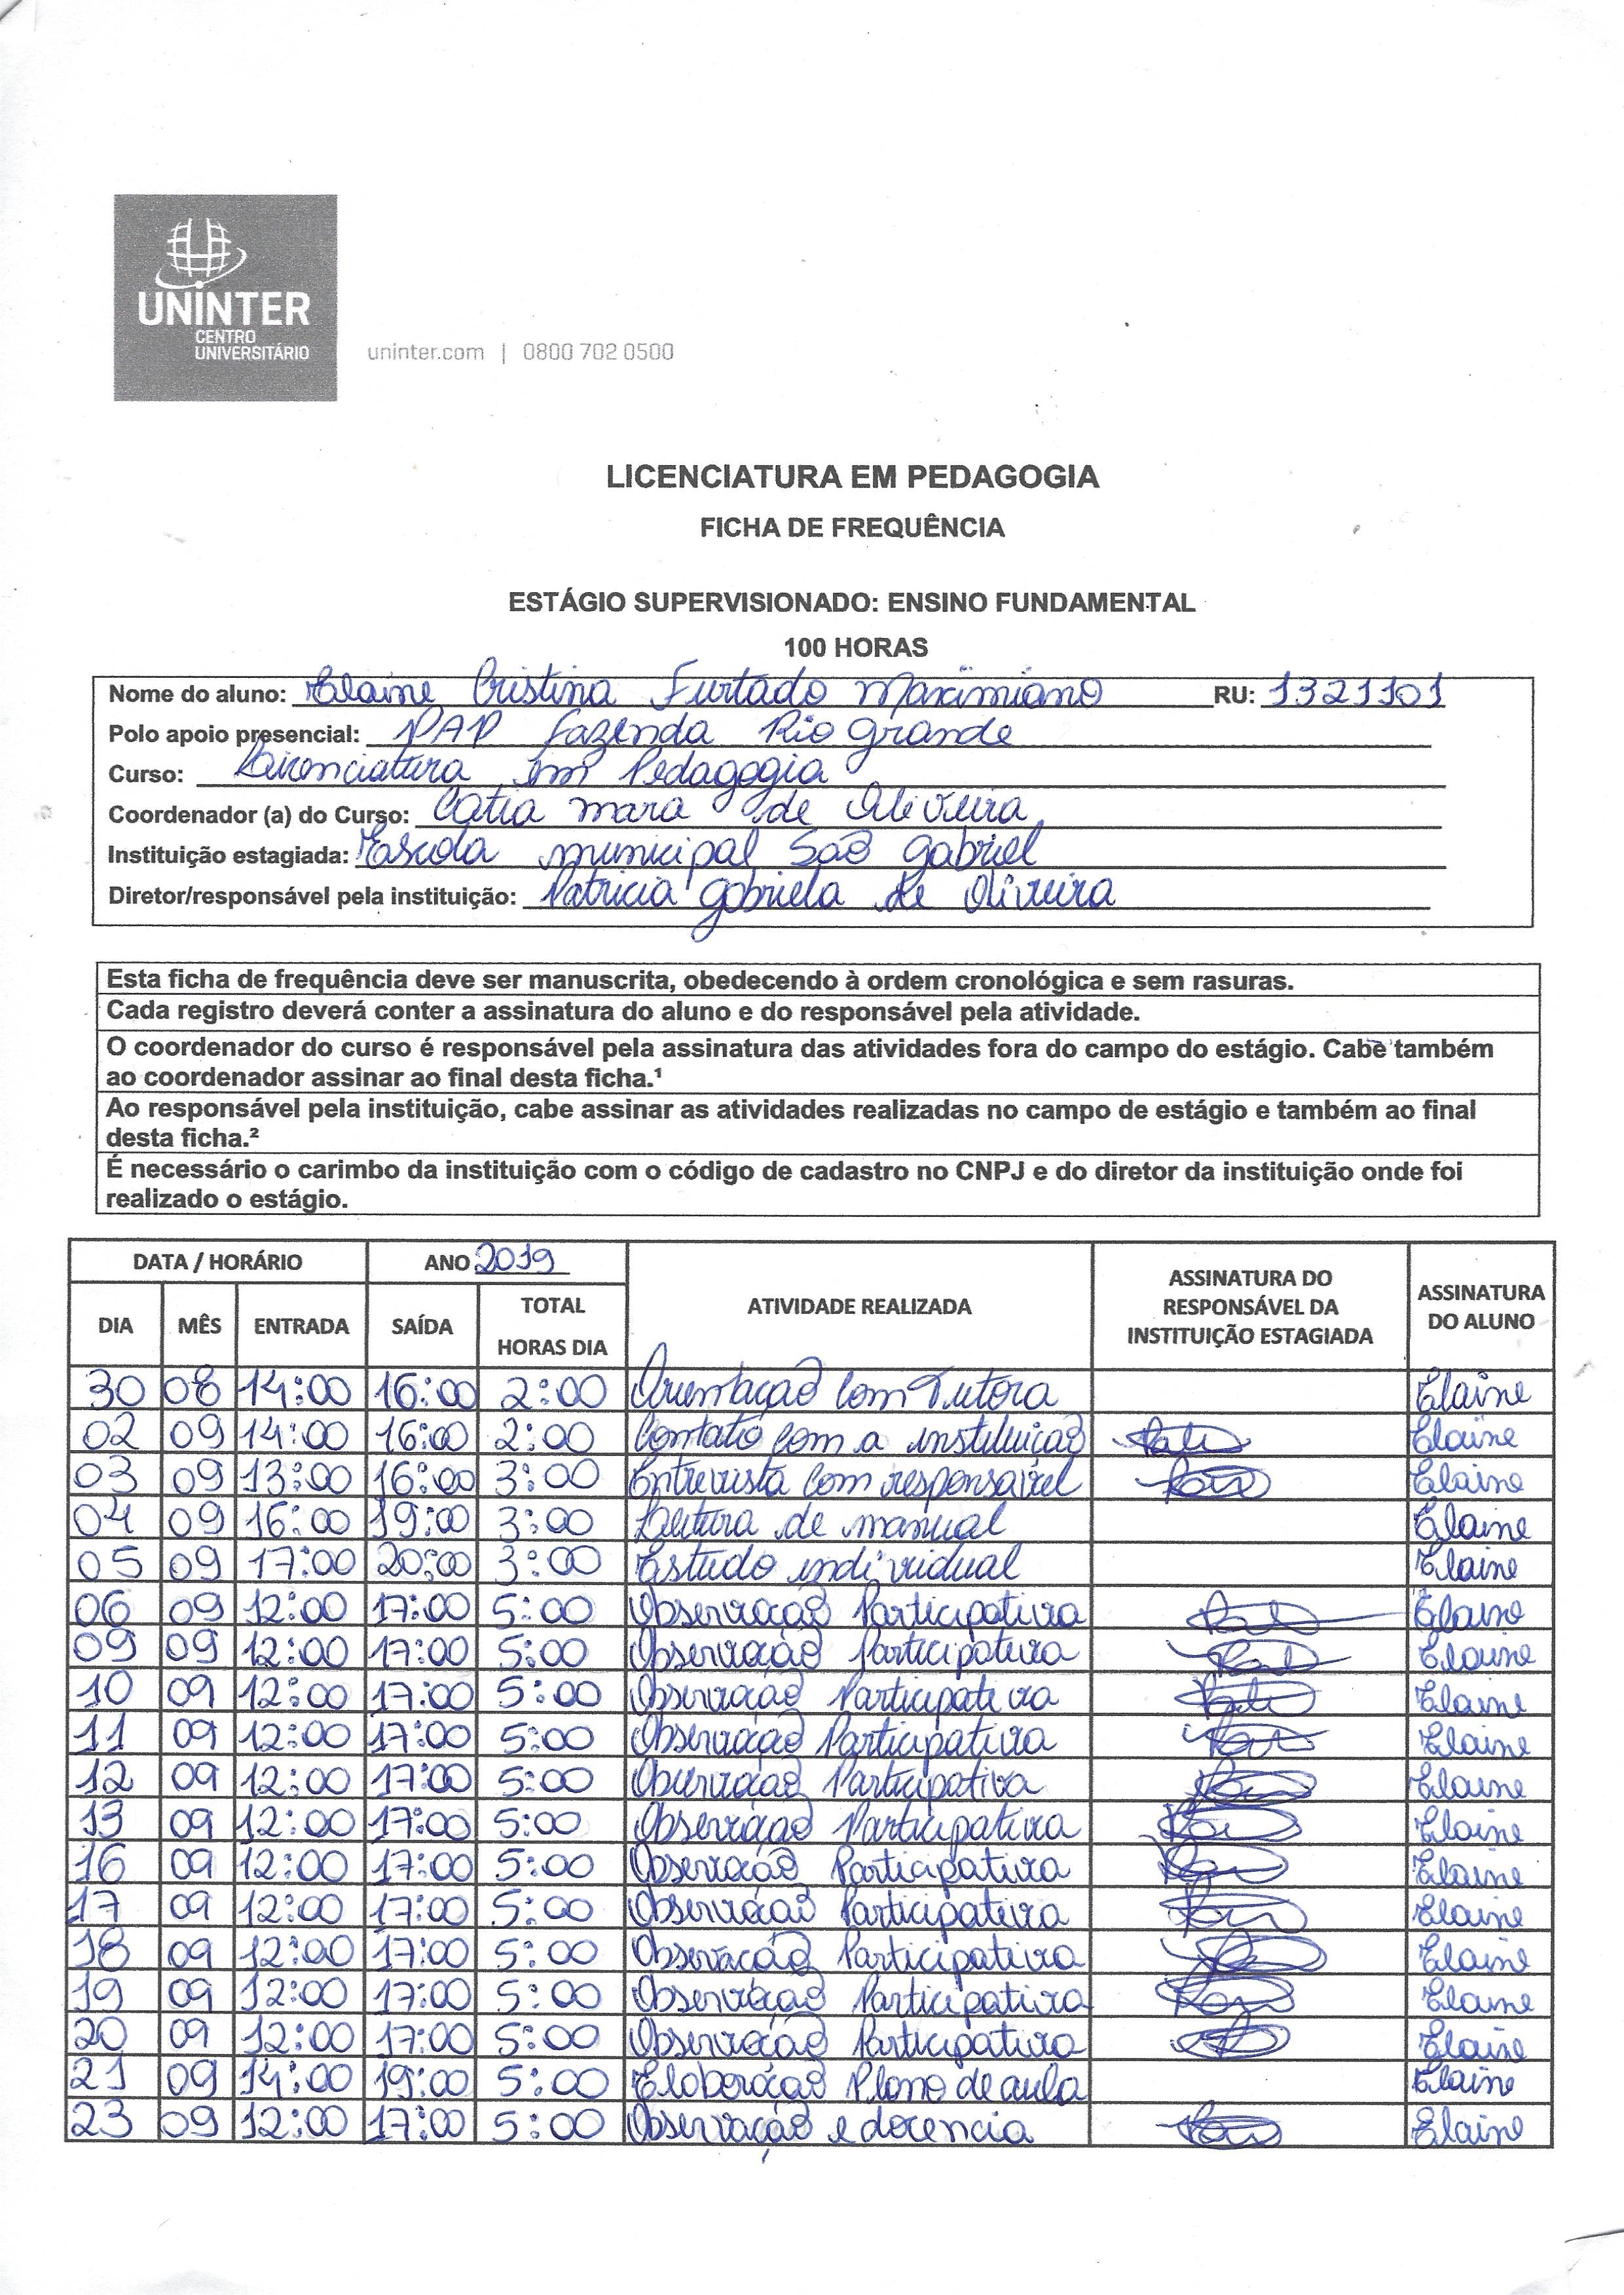 UNINTER
CENTRO
UNIVERSITÁRIO
uninter.com | 0800 702 0500
LICENCIATURA EM PEDAGOGIA
FICHA DE FREQUÊNCIA
ESTÁGIO SUPERVISIONADO: ENSINO FUNDAMENTAL
100 HORAS
Nome do aluno: Elaine Cristina Furtado Maximiano RU: 1321101
Polo apoio presencial: PAP Fazenda Rio Grande
Curso: Licenciatura em Pedagogia
Coordenador (a) do Curso: Catia Mara de Oliveira
Instituição estagiada: Escola municipal São Gabriel
Diretor/responsável pela instituição: Patricia Gabriela de Oliveira
Esta ficha de frequência deve ser manuscrita, obedecendo à ordem cronológica e sem rasuras.
Cada registro deverá conter a assinatura do aluno e do responsável pela atividade.
O coordenador do curso é responsável pela assinatura das atividades fora do campo do estágio. Cabe também
ao coordenador assinar ao final desta ficha.¹
Ao responsável pela instituição, cabe assinar as atividades realizadas no campo de estágio e também ao final
desta ficha.²
É necessário o carimbo da instituição com o código de cadastro no CNPJ e do diretor da instituição onde foi
realizado o estágio.
DATA / HORÁRIO ANO 2019 ATIVIDADE REALIZADA ASSINATURA DO RESPONSÁVEL DA INSTITUIÇÃO ESTAGIADA ASSINATURA DO ALUNO
DIA MÊS ENTRADA SAÍDA TOTAL HORAS DIA
30 08 14:00 16:00 2:00 Orientação com Tutora Elaine
02 09 14:00 16:00 2:00 Contato com a instituição Elaine
03 09 13:00 16:00 3:00 Entrevista com responsável Elaine
04 09 16:00 19:00 3:00 Leitura de manual Elaine
05 09 17:00 20:00 3:00 Estudo individual Elaine
06 09 12:00 17:00 5:00 Observação Participativa Elaine
09 09 12:00 17:00 5:00 Observação Participativa Elaine
10 09 12:00 17:00 5:00 Observação Participativa Elaine
11 09 12:00 17:00 5:00 Observação Participativa Elaine
12 09 12:00 17:00 5:00 Observação Participativa Elaine
13 09 12:00 17:00 5:00 Observação Participativa Elaine
16 09 12:00 17:00 5:00 Observação Participativa Elaine
17 09 12:00 17:00 5:00 Observação Participativa Elaine
18 09 12:00 17:00 5:00 Observação Participativa Elaine
19 09 12:00 17:00 5:00 Observação Participativa Elaine
20 09 12:00 17:00 5:00 Observação Participativa Elaine
21 09 14:00 19:00 5:00 Elaboração Plano de aula Elaine
23 09 12:00 17:00 5:00 Observação e docencia Elaine